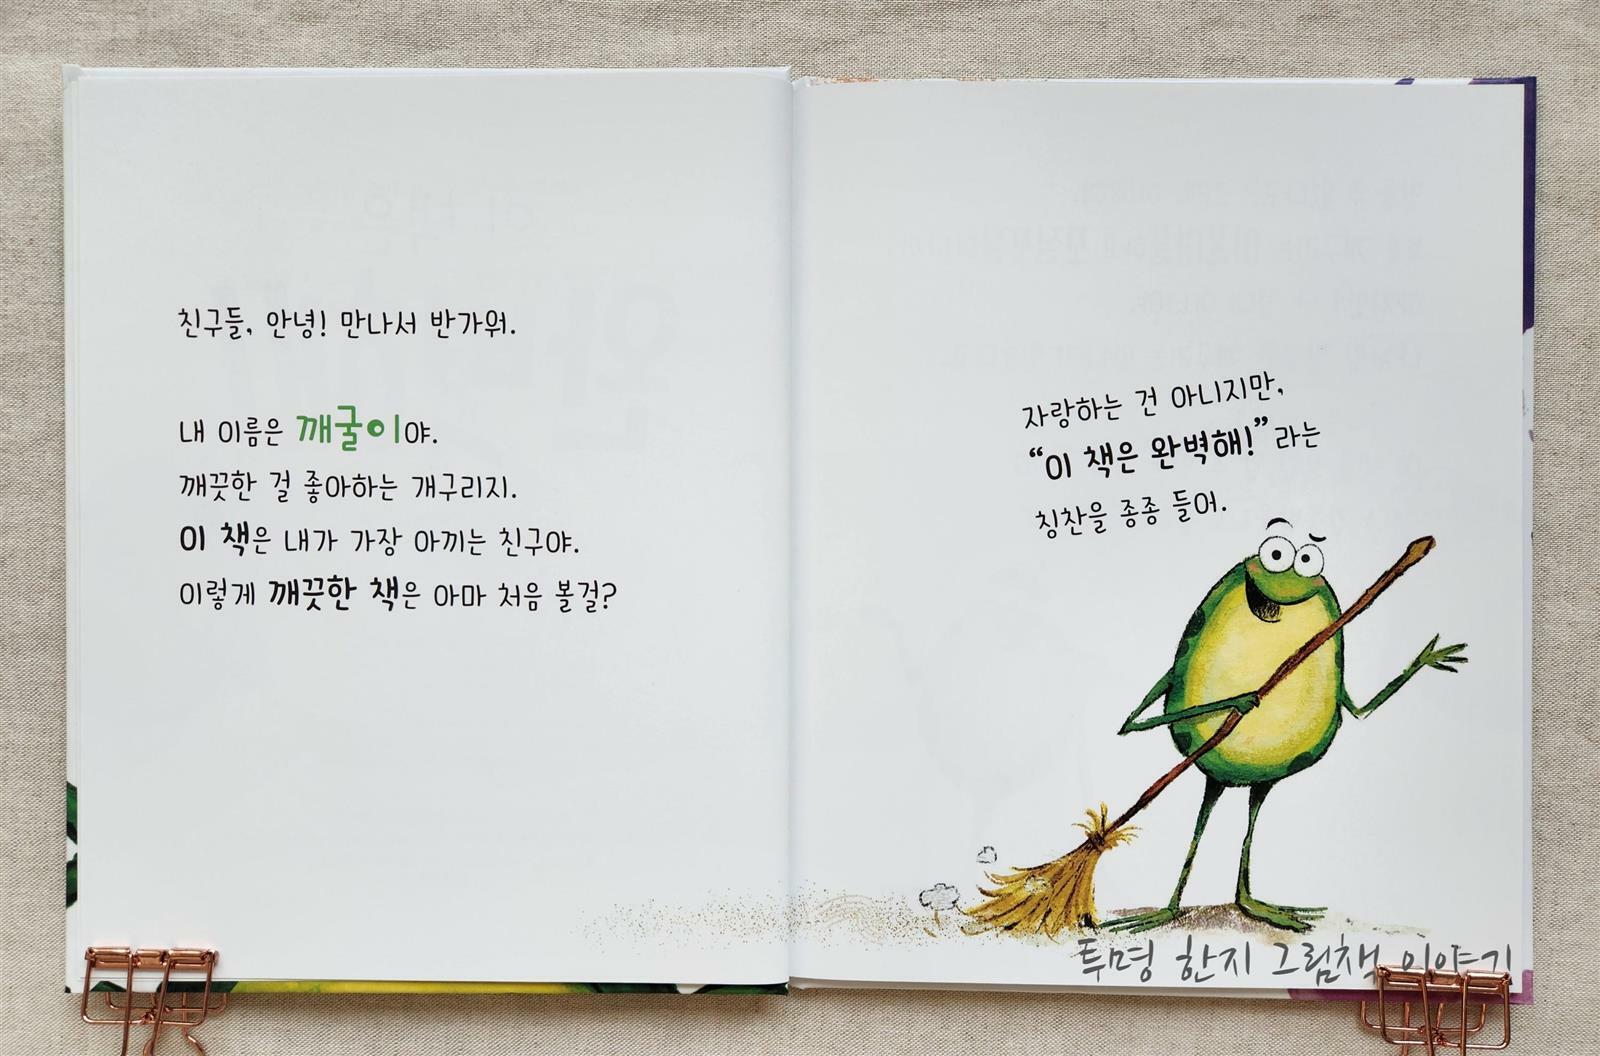 친구들, 안녕! 만나서 반가워.
내 이름은 깨굴이야.
깨끗한 걸 좋아하는 개구리지.
이 책은 내가 가장 아끼는 친구야.
이렇게 깨끗한 책은 아마 처음 볼걸?
자랑하는 건 아니지만,
“이 책은 완벽해!”라는
칭찬을 종종 들어.
투명 한지 그림책 이야기